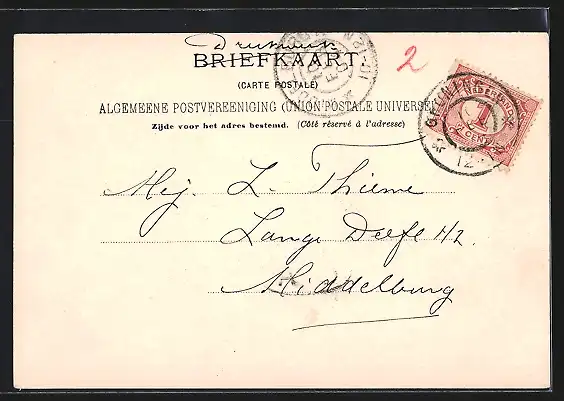 Drukwerk
BRIEFKAART.
(CARTE POSTALE)
2
ALGEMEENE POSTVEREENIGING (UNION POSTALE UNIVERSELLE)
Zijde voor het adres bestemd. (Côté réservé à l'adresse)
NEDERLAND
1
CENT
12
Mej. L. Thieme
Lange Delft H2
Middelburg